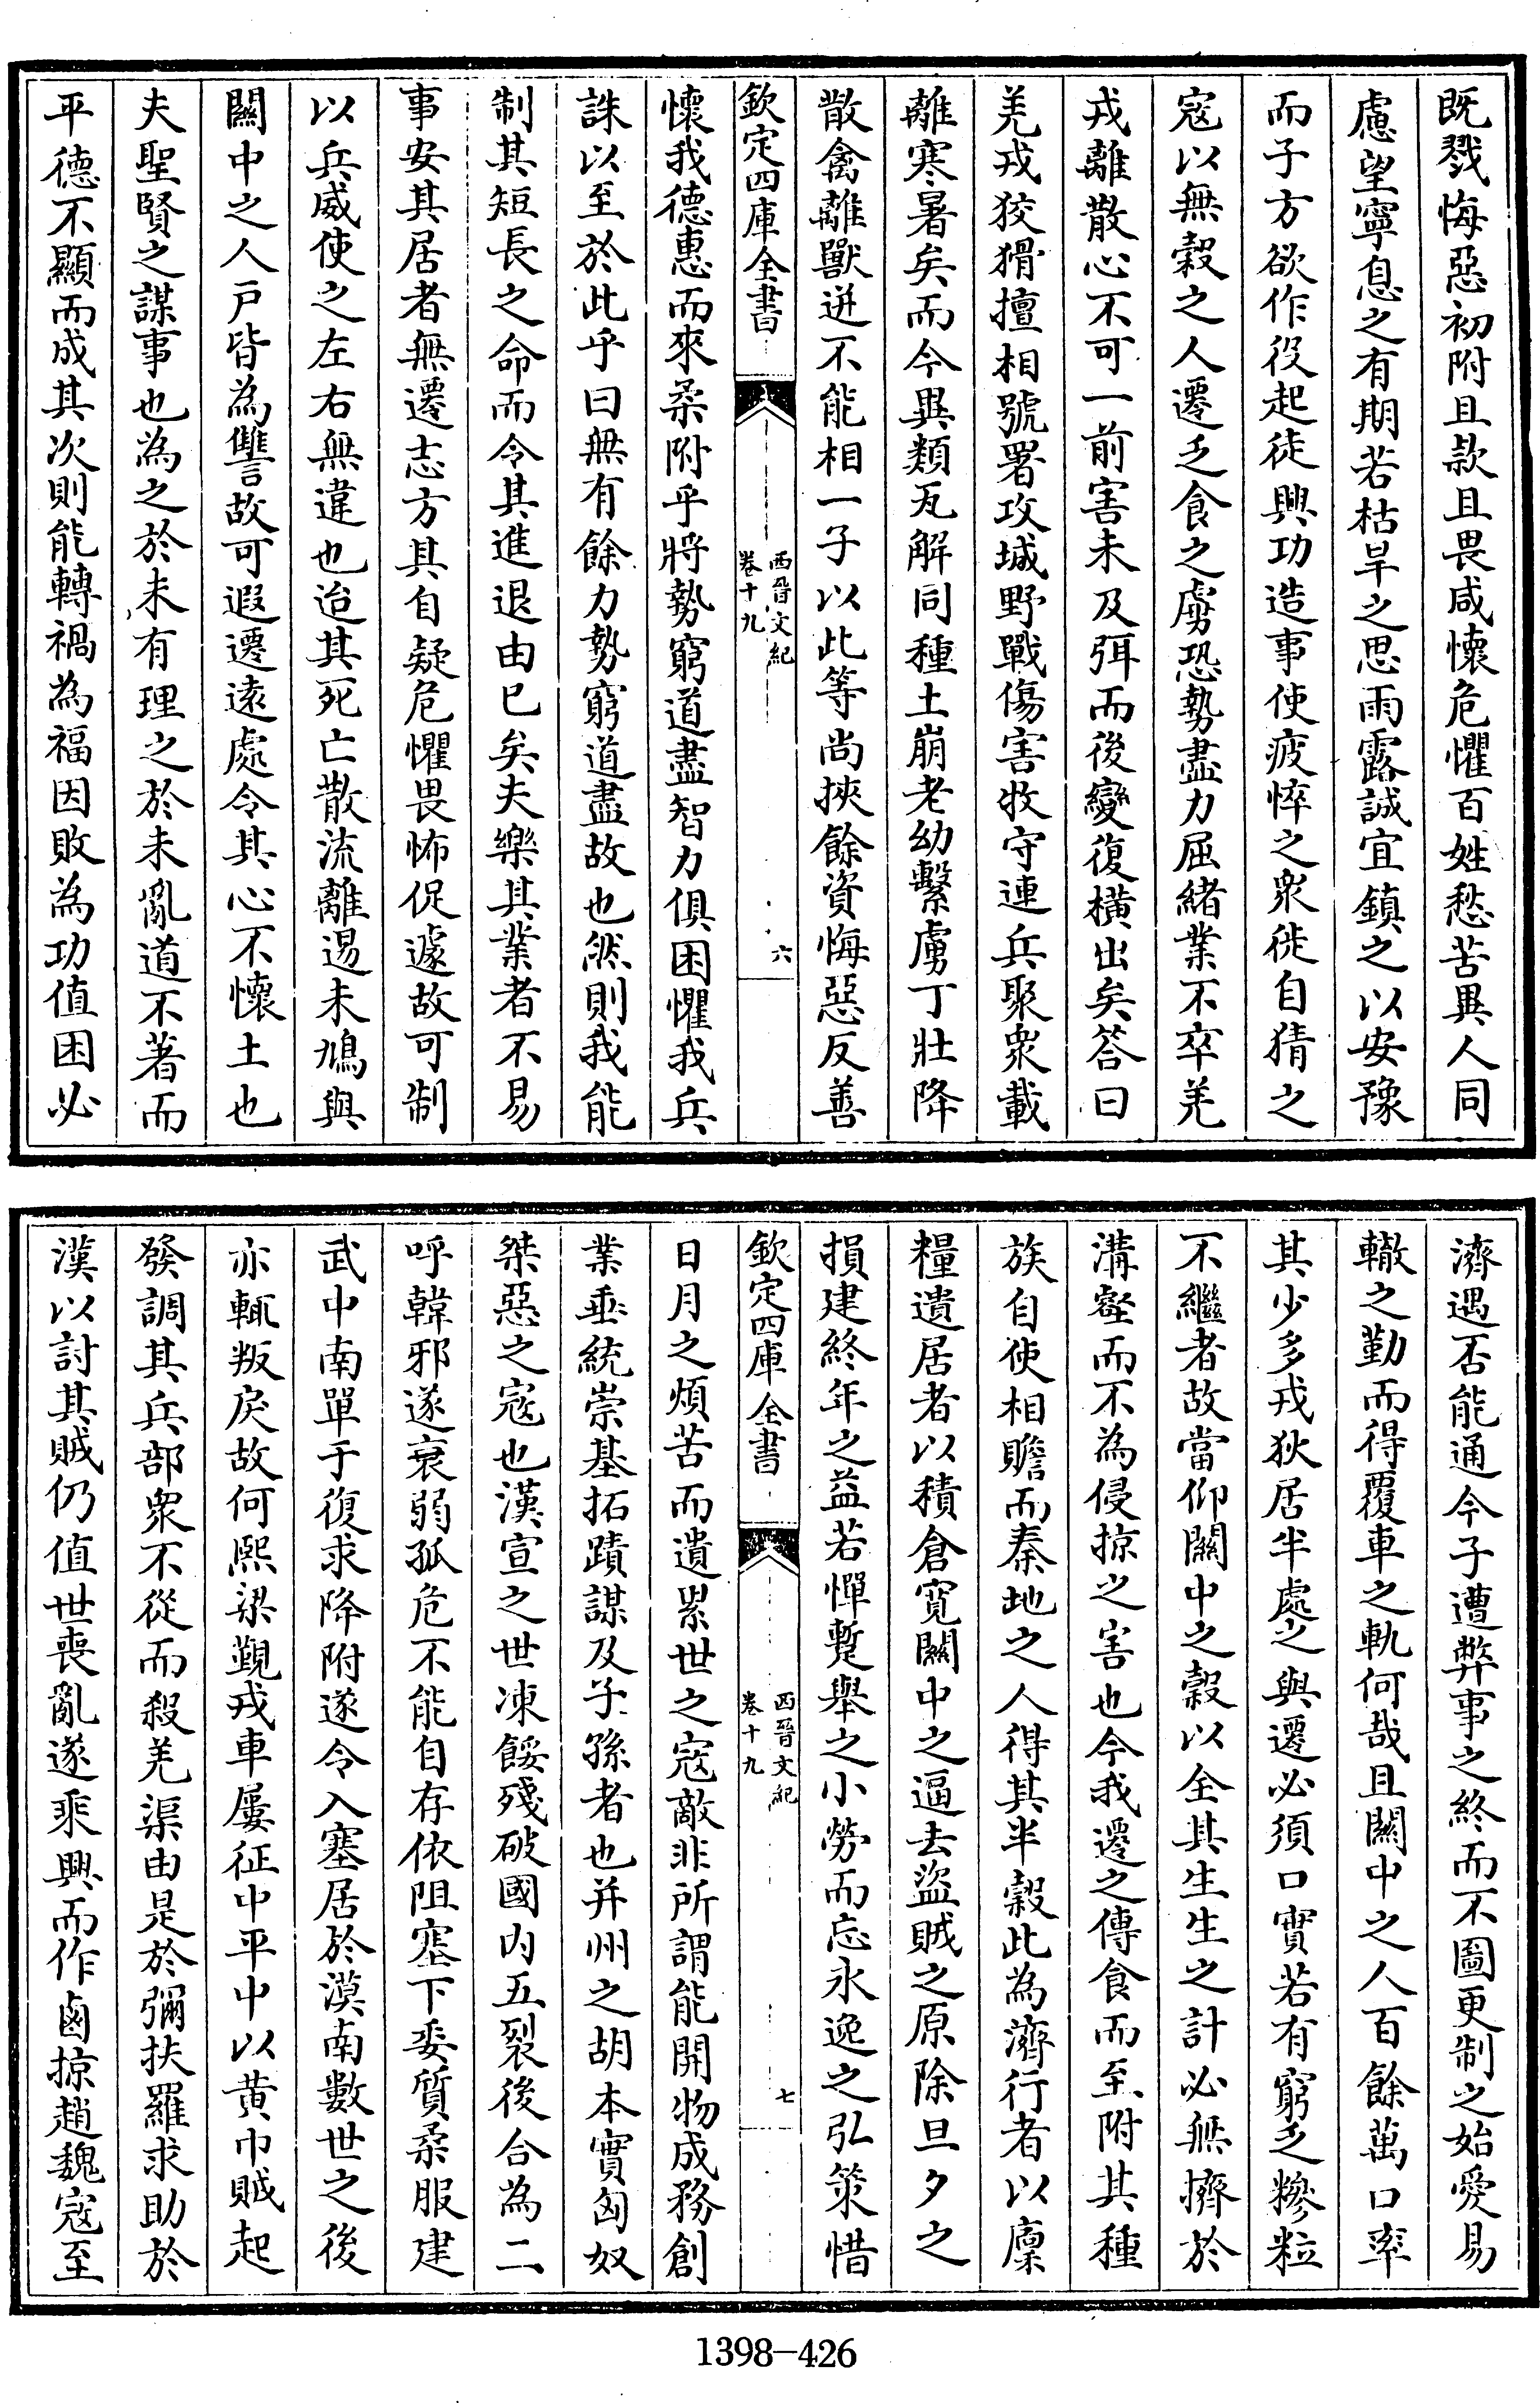 既戮悔惡初附且款且畏咸懷危懼百姓愁苦異人同
慮望寧息之有期若枯旱之思雨露誠宜鎮之以安豫
而子方欲作役起徒興功造事使疲悴之衆徙自猜之
寇以無穀之人遷乏食之虜恐勢盡力屈緒業不卒羌
戎離散心不可一前害未及弭而後變復橫出矣答曰
羌戎狡猾擅相號署攻城野戰傷害牧守連兵聚衆載
離寒暑矣而今異類瓦解同種土崩老幼繫虜丁壯降
散禽離獸迸不能相一子以此等尚挾餘資悔惡反善
欽定四庫全書
西晉文紀
卷十九
六
懷我德惠而來柔附乎將勢窮道盡智力俱困懼我兵
誅以至於此乎曰無有餘力勢窮道盡故也然則我能
制其短長之命而令其進退由已矣夫樂其業者不易
事安其居者無遷志方其自疑危懼畏怖促遽故可制
以兵威使之左右無違也迨其死亡散流離逷未鳩與
關中之人戶皆為讐故可遐遷遠處令其心不懷土也
夫聖賢之謀事也為之於未有理之於未亂道不著而
平德不顯而成其次則能轉禍為福因敗為功值困必
濟遇否能通今子遭弊事之終而不圖更制之始愛易
轍之勤而得覆車之軌何哉且關中之人百餘萬口率
其少多戎狄居半處之與遷必須口實若有窮乏糝粒
不繼者故當仰關中之穀以全其生生之計必無擠於
溝壑而不為侵掠之害也今我遷之傳食而至附其種
族自使相贍而秦地之人得其半穀此為濟行者以廩
糧遺居者以積倉寬關中之逼去盜賊之原除旦夕之
損建終年之益若憚蹔舉之小勞而忘永逸之弘策惜
欽定四庫全書
西晉文紀
卷十九
七
日月之煩苦而遺累世之寇敵非所謂能開物成務創
業垂統崇基拓蹟謀及子孫者也并州之胡本實匈奴
桀惡之寇也漢宣之世凍餒殘破國內五裂後合為二
呼韓邪遂衰弱孤危不能自存依阻塞下委質柔服建
武中南單于復求降附遂令入塞居於漠南數世之後
亦輒叛戾故何熙梁覲戎車屢征中平中以黃巾賊起
發調其兵部衆不從而殺羌渠由是於彌扶羅求助於
漢以討其賊仍值世喪亂遂乘興而作鹵掠趙魏寇至
1398-426